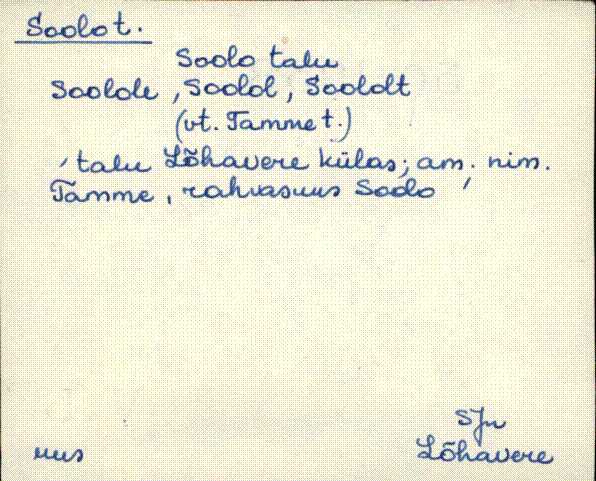 Soolo t.
Soolo talu
Soolole, Soolol, Soololt
(vt. Tamme t.)
'talu Lõhavere külas; am. nim.
Tamme, rahvasuus Soolo'
SJn
Lõhavere
uus